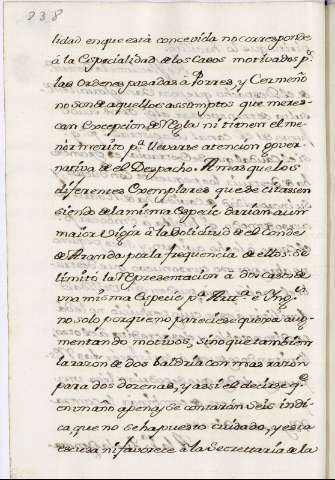 238
lidad en que està concevida no corresponde
à la Especialidad de los Casos motivados pr.
las Ordenes pasadas à Porres, y Cermeño
no son de aquellos assimptos que meres-
can Excepcion de Regla ni tienen el me-
nòr merito pa. llevarse atencion gover-
nativa de el Despacho. A mas que los
diferentes Exemplares que se citasen
siendo de la misma Especie darian aun
maior vigor à la Solicitud de el Conde
de Aranda por la frequencia de ellos. Se
limitò la Representacion à dos Casos de
vna misma Especie pa. Arta. è Ings.
no solo porque no pareciese queria au-
mentando motivos, sino que tambien
la razon de dos valdria con mas razon
para dos dozenas, y assi el decirse qe.
en vn año apenas se contaràn seis indi-
ca, que no se ha puesto cuidado, y esta
escusa ni favorece à la Secretaria de la